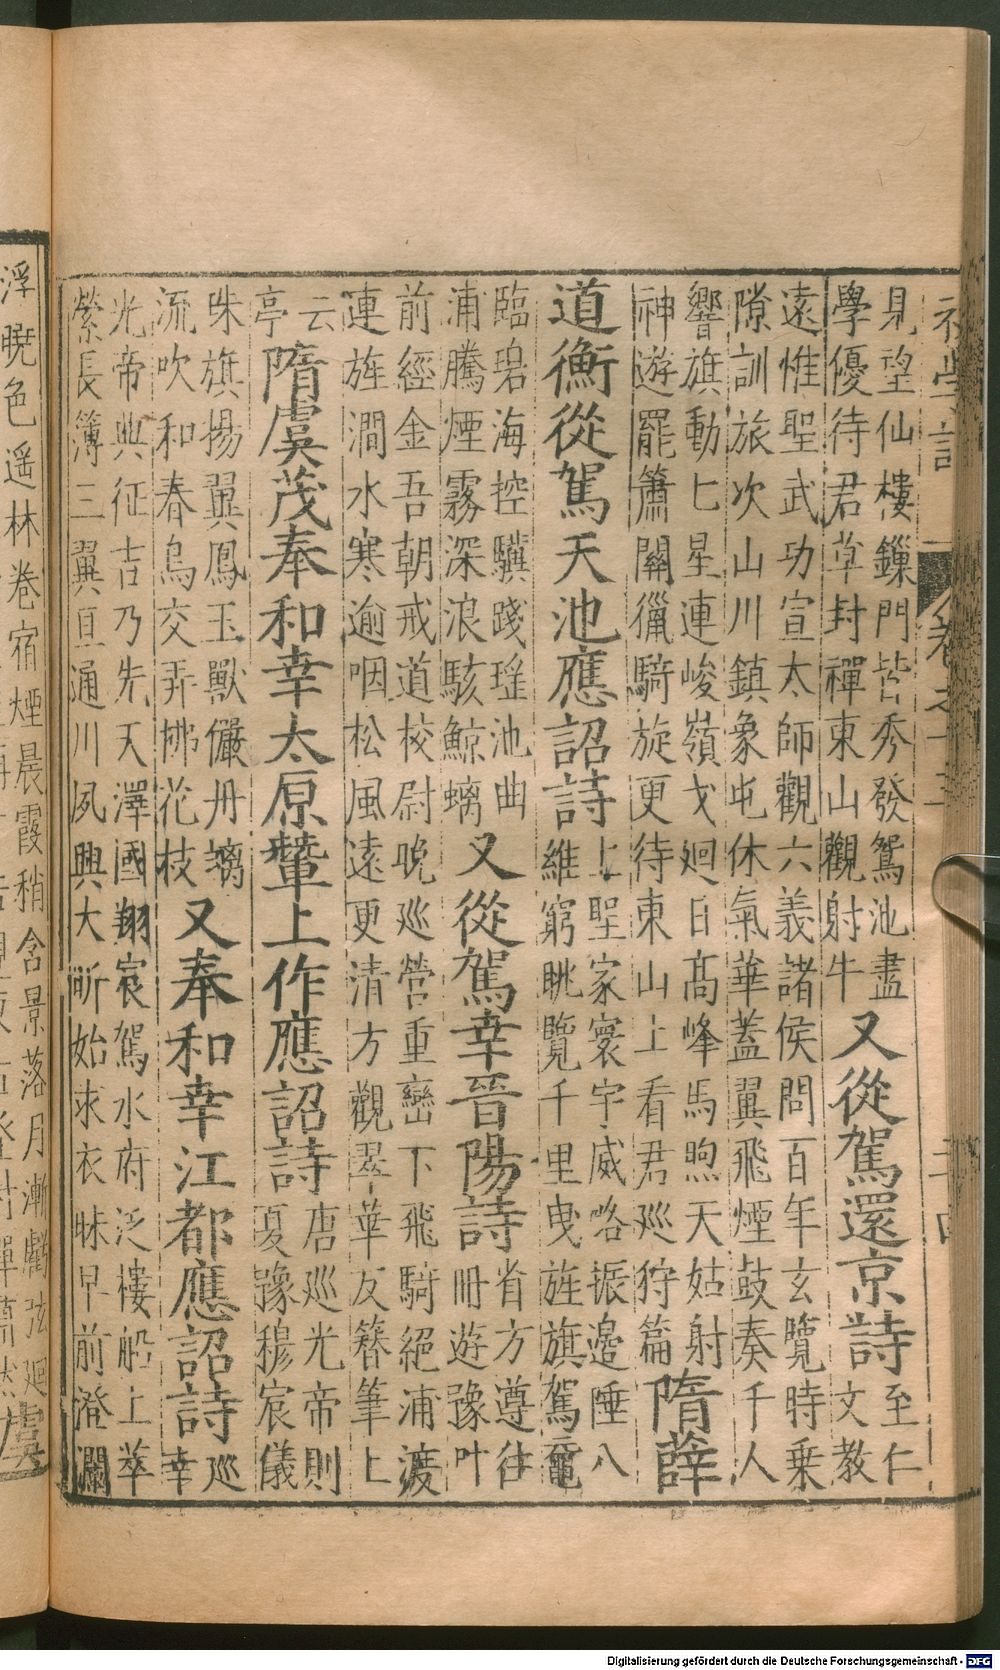 初學記 卷之十三 三四
見望仙樓鏁門苔秀發鴛池盡
學優待君草封禪東山觀射牛
又從駕還京詩
至仁
文教
遠惟聖武功宣太師觀六義諸侯問百年玄覽時乗
隙訓旅次山川鎮象屯休氣華蓋翼飛煙鼓奏千人
響旗動七星連峻嶺戈廻日髙峰馬煦天姑射
神遊罷簫關獵騎旋更待東山上看君廵狩篇
隋薛
道衡從駕天池應詔詩
上聖家寰宇威略振邉陲八
維窮眺覽千里曳旌旗駕黿
臨碧海控驥踐瑶池曲
浦騰煙霧深浪駭鯨螭
又從駕幸晉陽詩
省方遵往
冊遊豫叶
前經金吾朝戒道校尉晚廵營重巒下飛騎絕浦渡
連旌澗水寒逾咽松風遠更清方觀翠華反簪筆上
云
亭
隋虞茂奉和幸太原輦上作應詔詩
唐廵光帝則
夏豫穆宸儀
珠旗揚翼鳳玉獸儼丹螭
流吹和春鳥交弄拂花枝
又奉和幸江都應詔詩
廵
幸
光帝典征吉乃先天澤國翔宸駕水府泛樓船上萃
縈長薄三翼亘通川夙興大昕始求衣昧旦前澄瀾
浮曉色遥林卷宿煙晨霞稍含景落月漸虧弦廻
虞
Digitalisierung gefördert durch die Deutsche Forschungsgemeinschaft - DFG